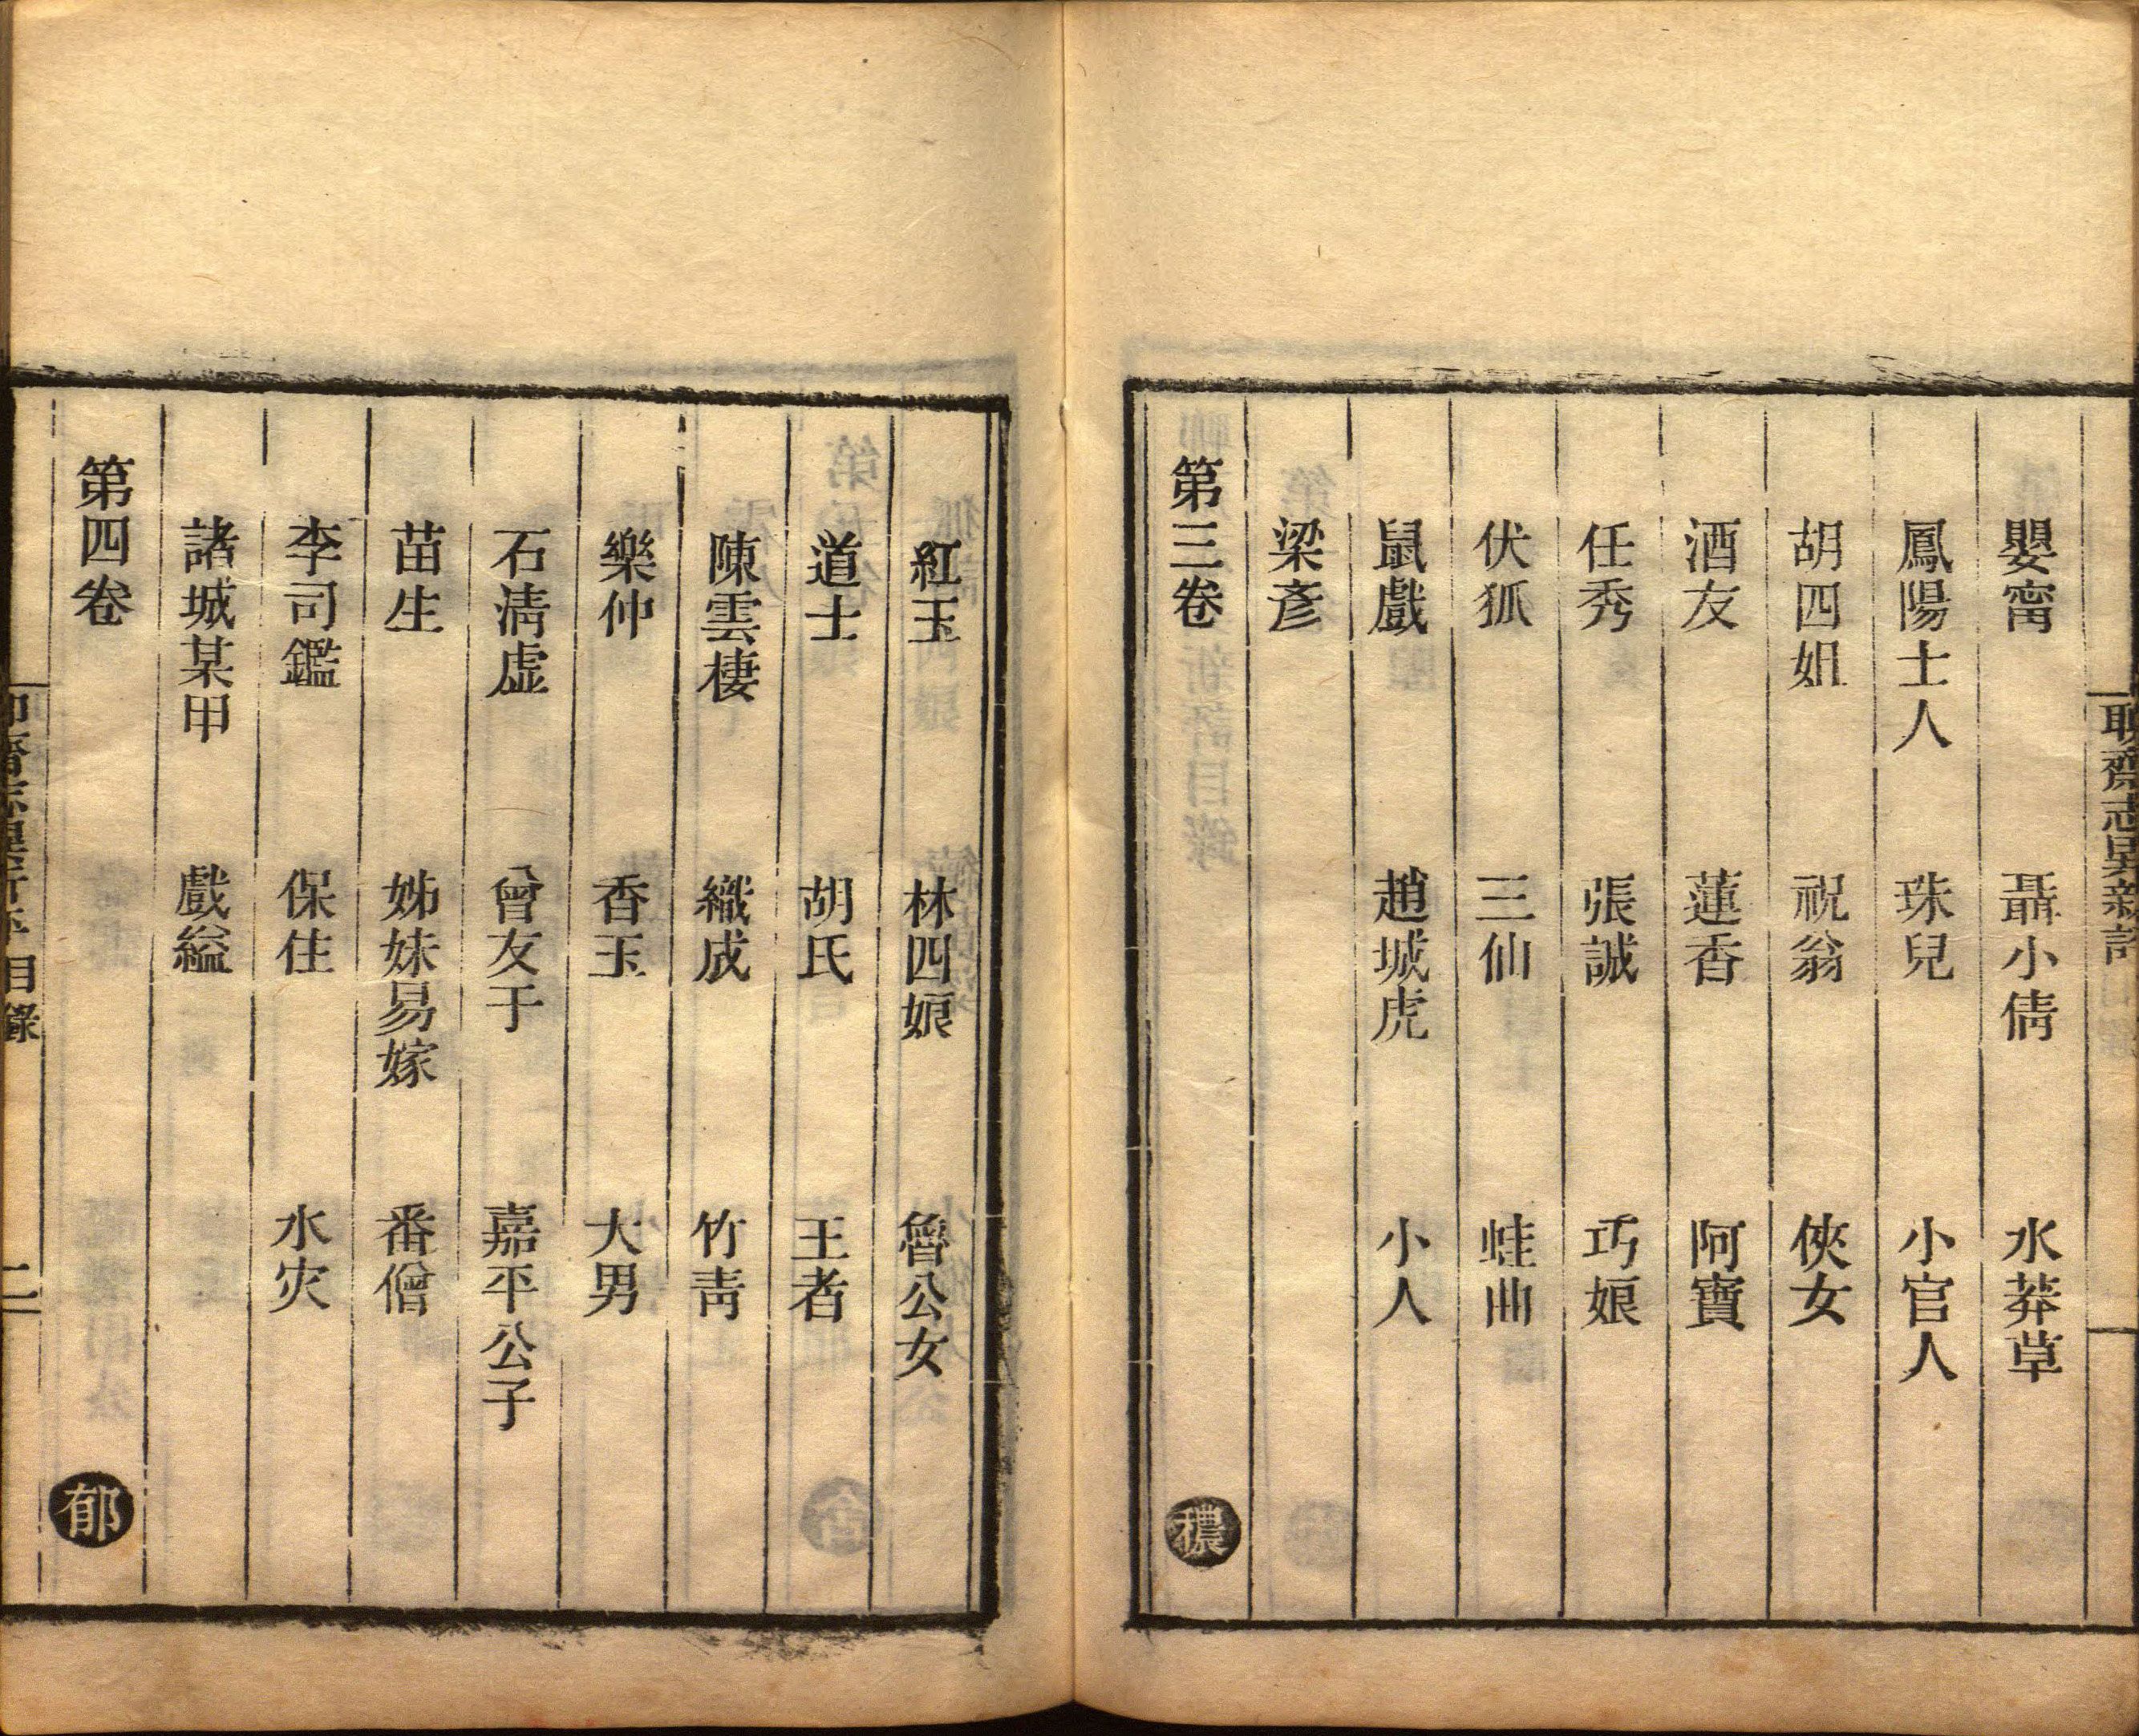 聊齋志異新評
嬰甯　聶小倩　水莽草
鳳陽士人　珠兒　小官人
胡四姐　祝翁　俠女
酒友　蓮香　阿寶
任秀　張誠　巧娘
伏狐　三仙　蛙曲
鼠戲　趙城虎　小人
梁彥
第三卷　穠
紅玉　林四娘　魯公女
道士　胡氏　王者
陳雲棲　織成　竹青
樂仲　香玉　大男
石清虛　曾友于　嘉平公子
苗生　姊妹易嫁　番僧
李司鑑　保住　水灾
諸城某甲　戲縊
第四卷　郁
目錄　二